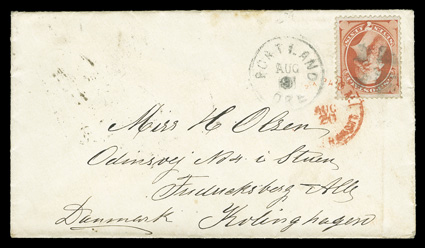 PORTLAND
AUG
ORE
AUG
Miss H Olsen
Odinsvej No 4 i Stuen
Fredricksberg Alle
Danmark Kobinghagen